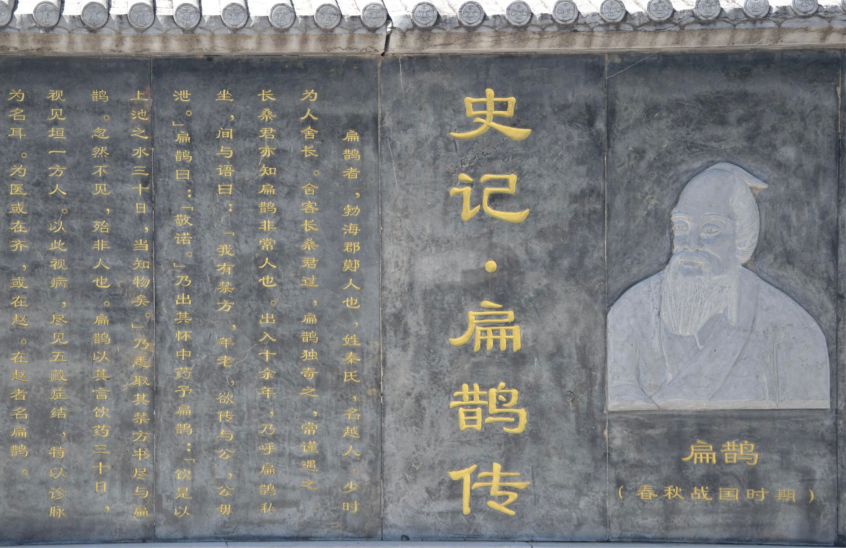 扁鹊
（春秋战国时期）
史记·扁鹊传
扁鹊者，勃海郡鄚人也，姓秦氏，名越人。少时
为人舍长。舍客长桑君过，扁鹊独奇之，常谨遇之
长桑君亦知扁鹊非常人也。出入十余年，乃呼扁鹊私
坐，间与语曰：「我有禁方，年老，欲传与公，公毋
泄。」扁鹊曰：「敬诺。」乃出其怀中药予扁鹊：「饮是以
上池之水三十日，当知物矣。」乃悉取其禁方书尽与扁
鹊。忽然不见，殆非人也。扁鹊以其言饮药三十日，
视见垣一方人。以此视病，尽见五藏症结，特以诊脉
为名耳。为医或在齐，或在赵。在赵者名扁鹊。